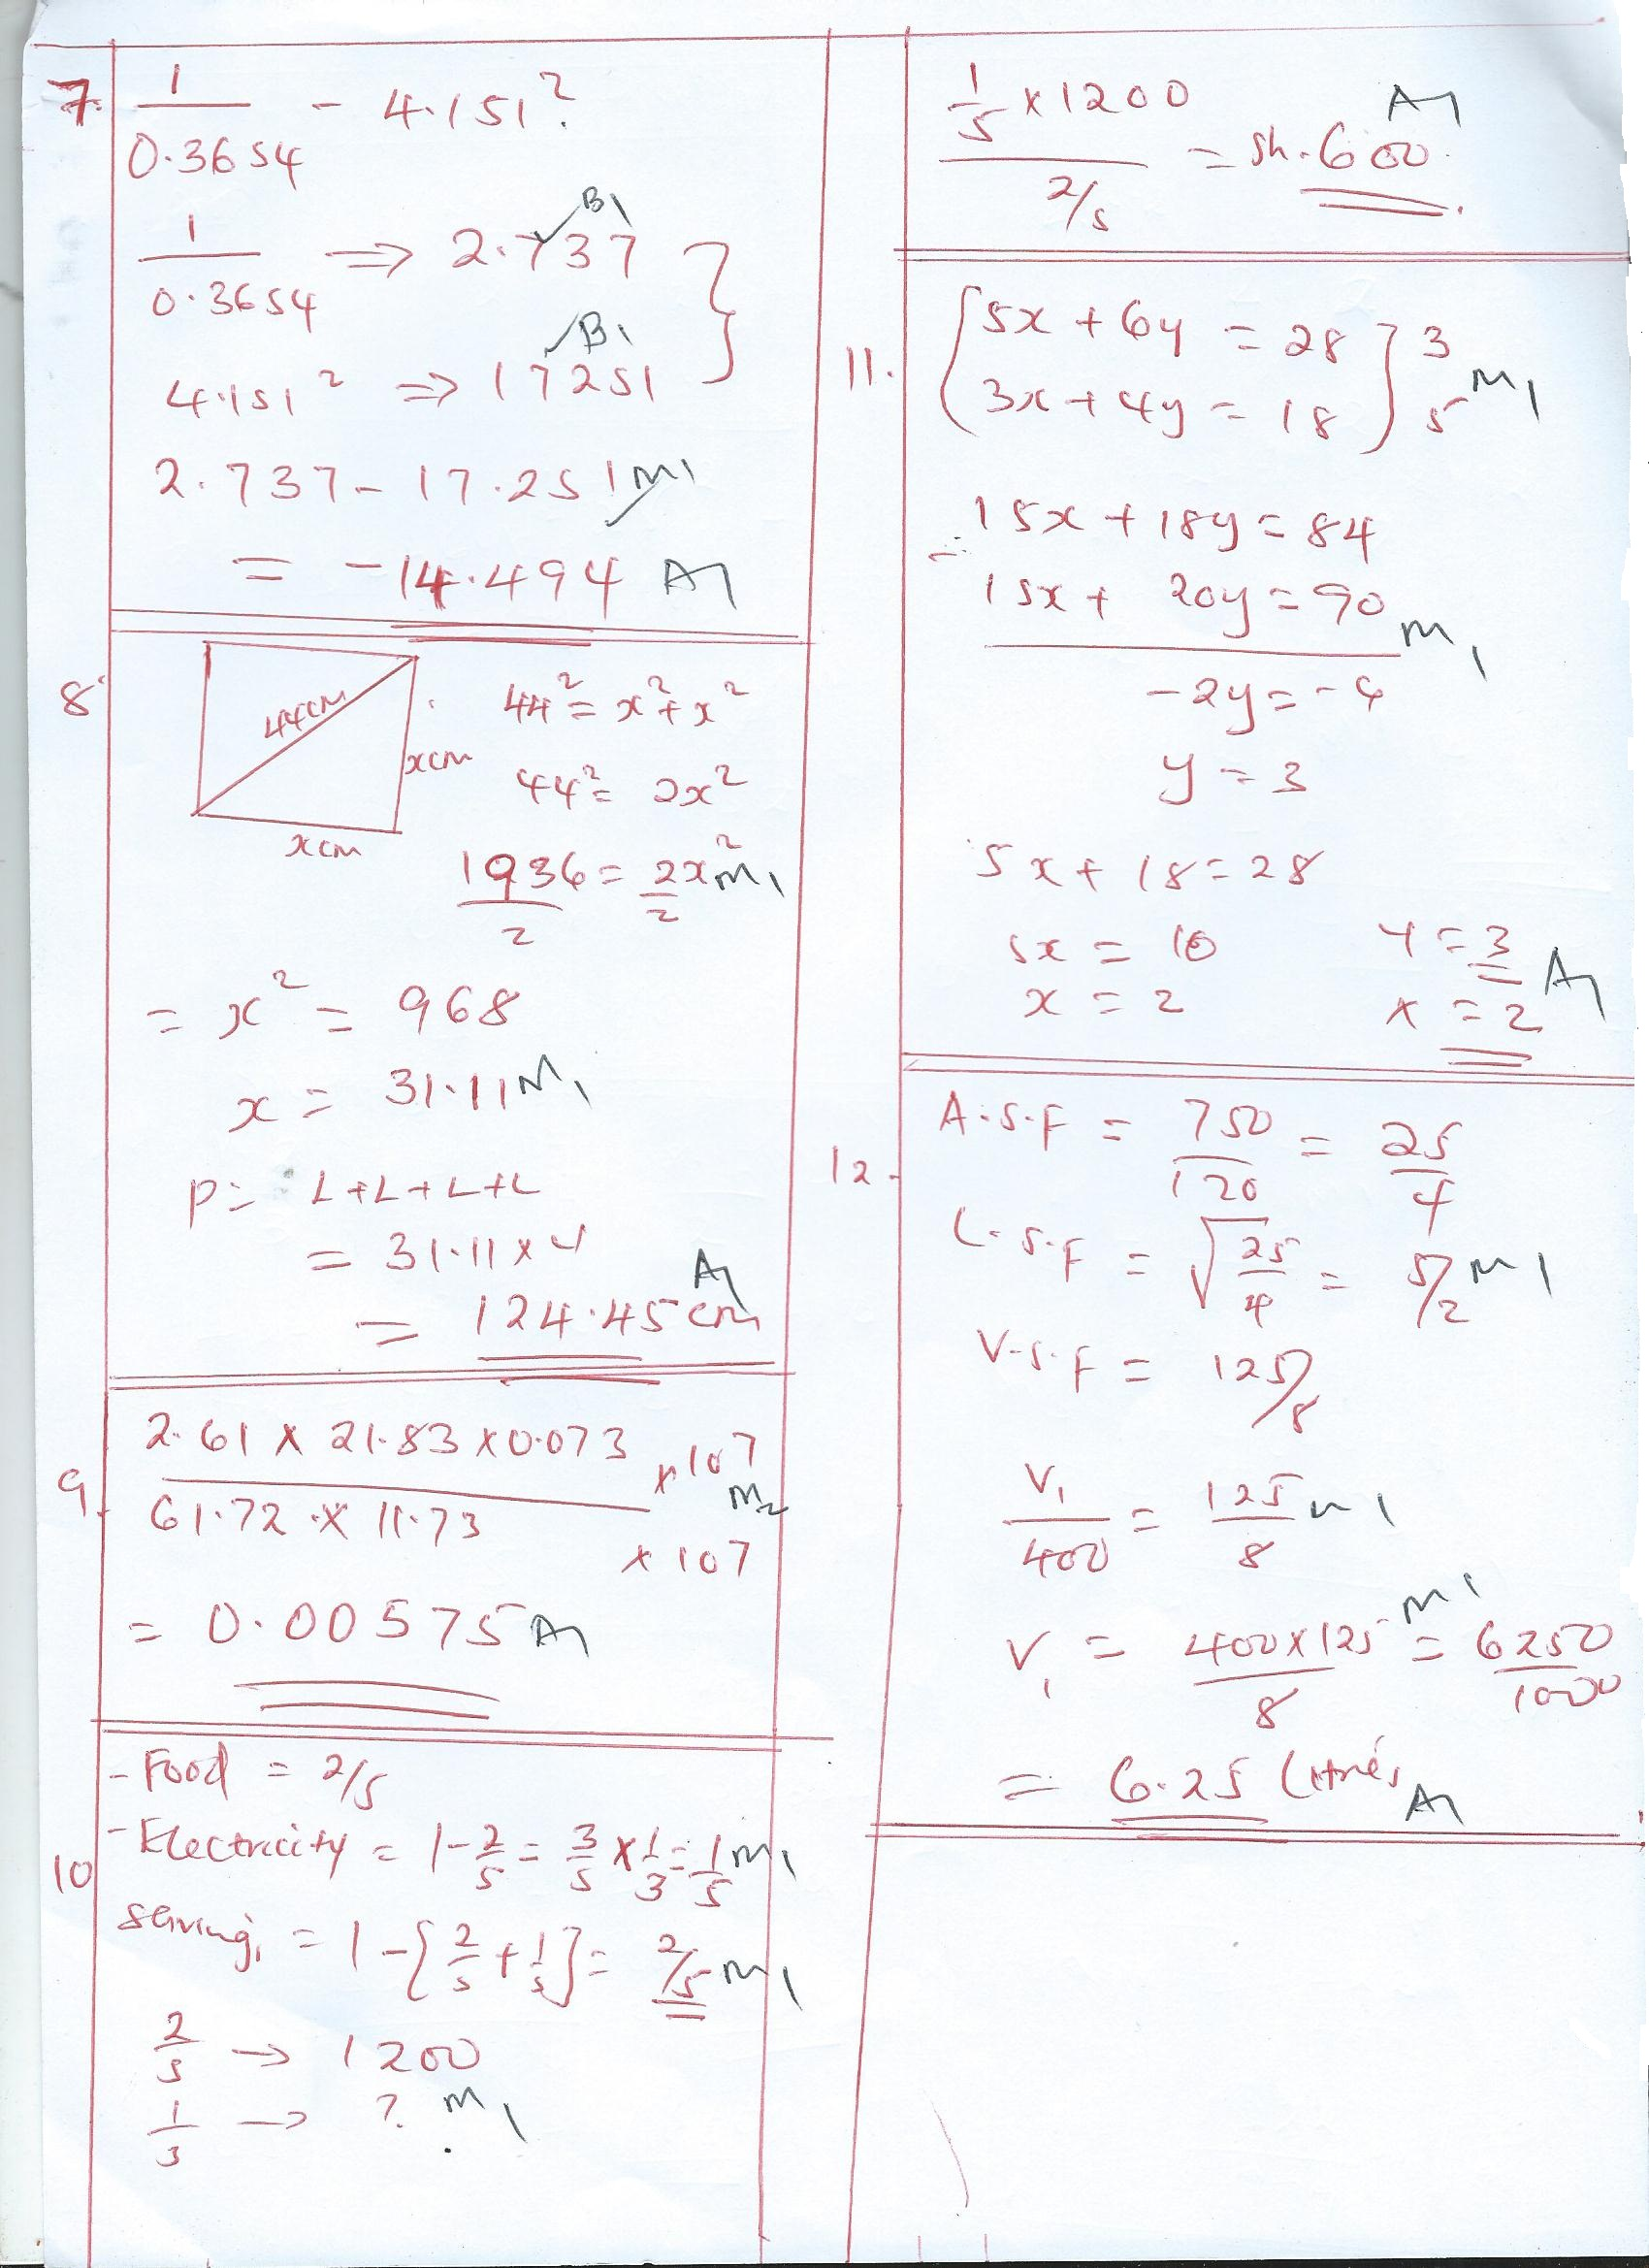 7. 1/0.3654 - 4.151²
1/0.3654 ⇒ 2.737 B1
4.151² ⇒ 17251 B1
2.737 - 17.251 M1
= -14.494 A1
8. 44cm
xcm
xcm
44² = x² + x²
44² = 2x²
1936/2 = 2x²/2 M1
= x² = 968
x = 31.11 M1
P = L+L+L+L
= 31.11 x 4
= 124.45 cm A1
9. 2.61 x 21.83 x 0.073 x 107 M2
61.72 x 11.73 x 107
= 0.00575 A1
10 - Food = 2/5
- Electricity = 1 - 2/5 = 3/5 x 1/3 = 1/5 M1
= 1 - {2/5 + 1/5} = 2/5 M1
2/5 → 1200
1/3 → ? M1
1/5 x 1200
2/5 = sh. 600 A1
11. 5x + 6y = 28 3
3x + 4y = 18 5 M1
15x + 18y = 84
- 15x + 20y = 90 M1
-2y = -6
y = 3
5x + 18 = 28
5x = 10
x = 2
y = 3
x = 2 A1
12. A.S.F = 750/120 = 25/4
L.S.F = √25/4 = 5/2 M1
V.S.F = 125/8
V₁/400 = 125/8 M1
V₁ = 400x125/8 M1 = 6250/1000
= 6.25 Litres A1